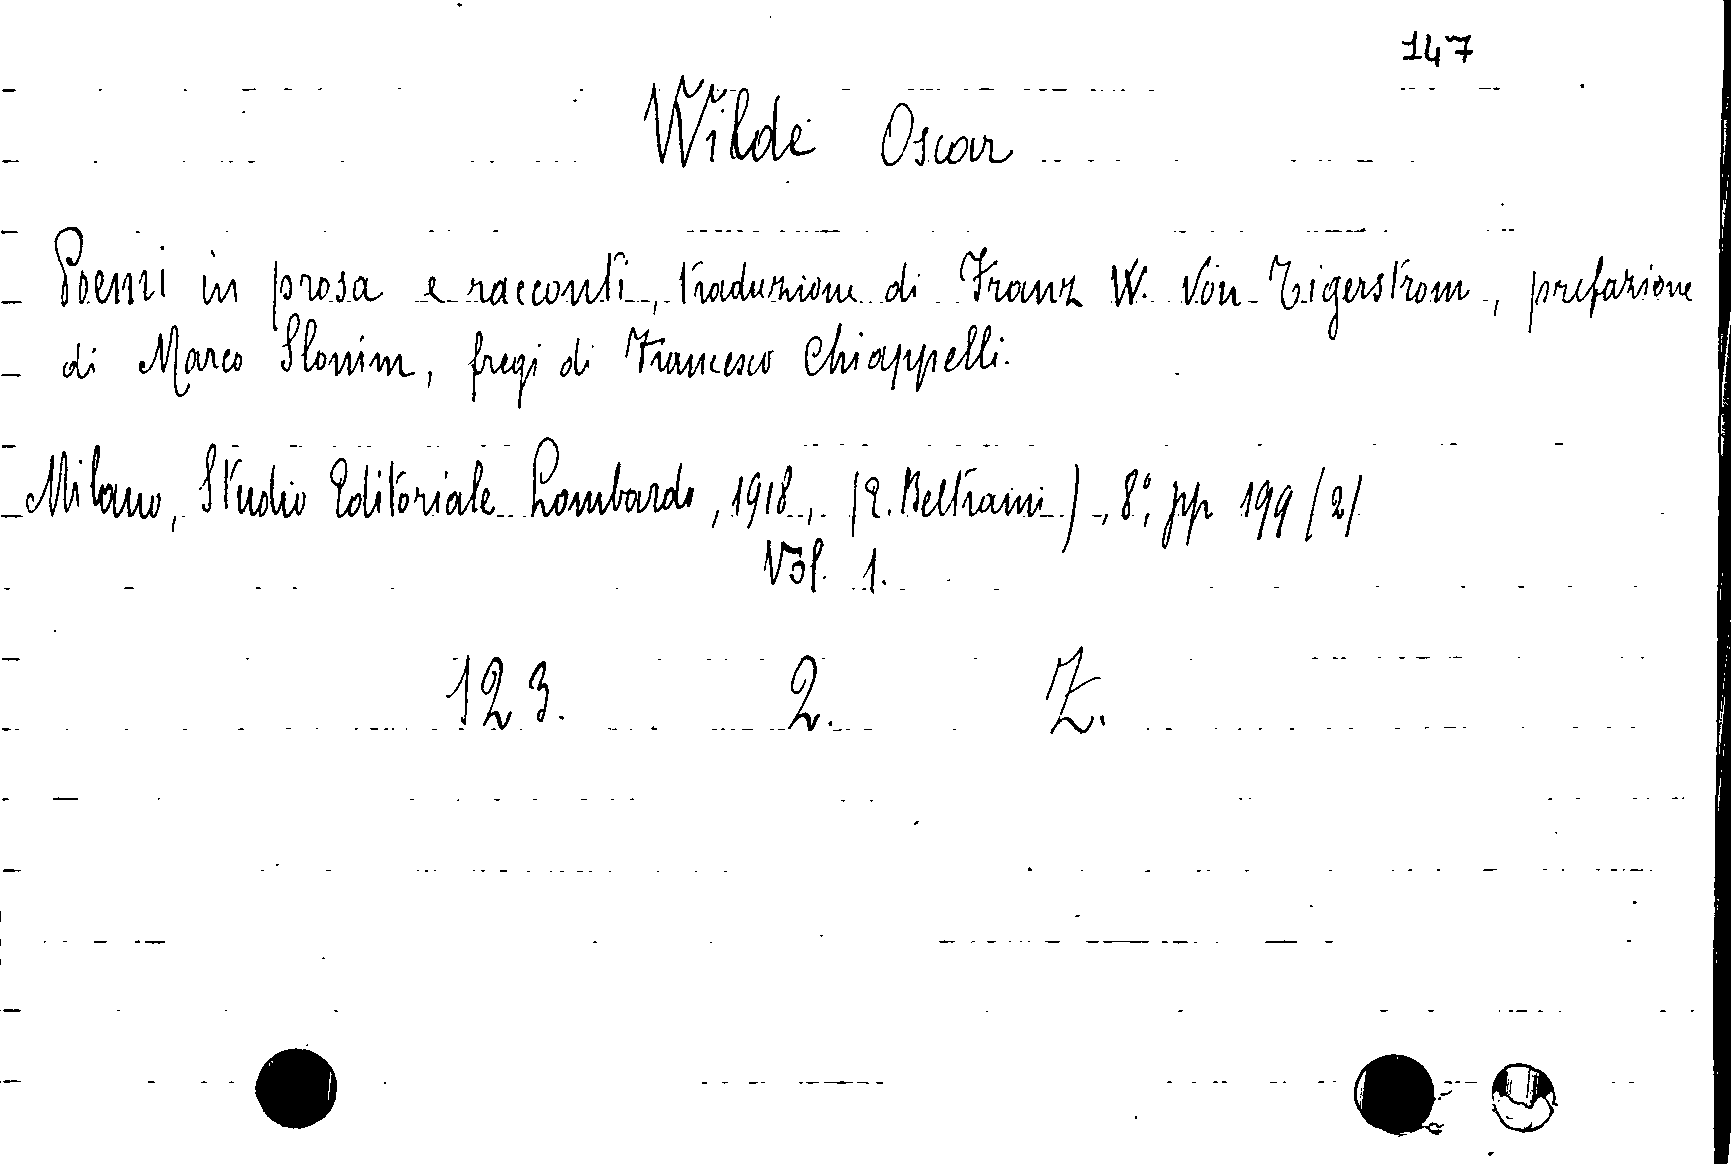 147
Wilde Oscar
Poemi in prosa e racconti, traduzione di Franz W. Von Tigerstrom, prefazione
di Marco Slonim, fregi di Francesco Chiappelli.
Milano, Studio Editoriale Lombardo, 1918, (E. Beltrami), 8°, pp 199 /2/
Vol. 1.
123. 2. Z.